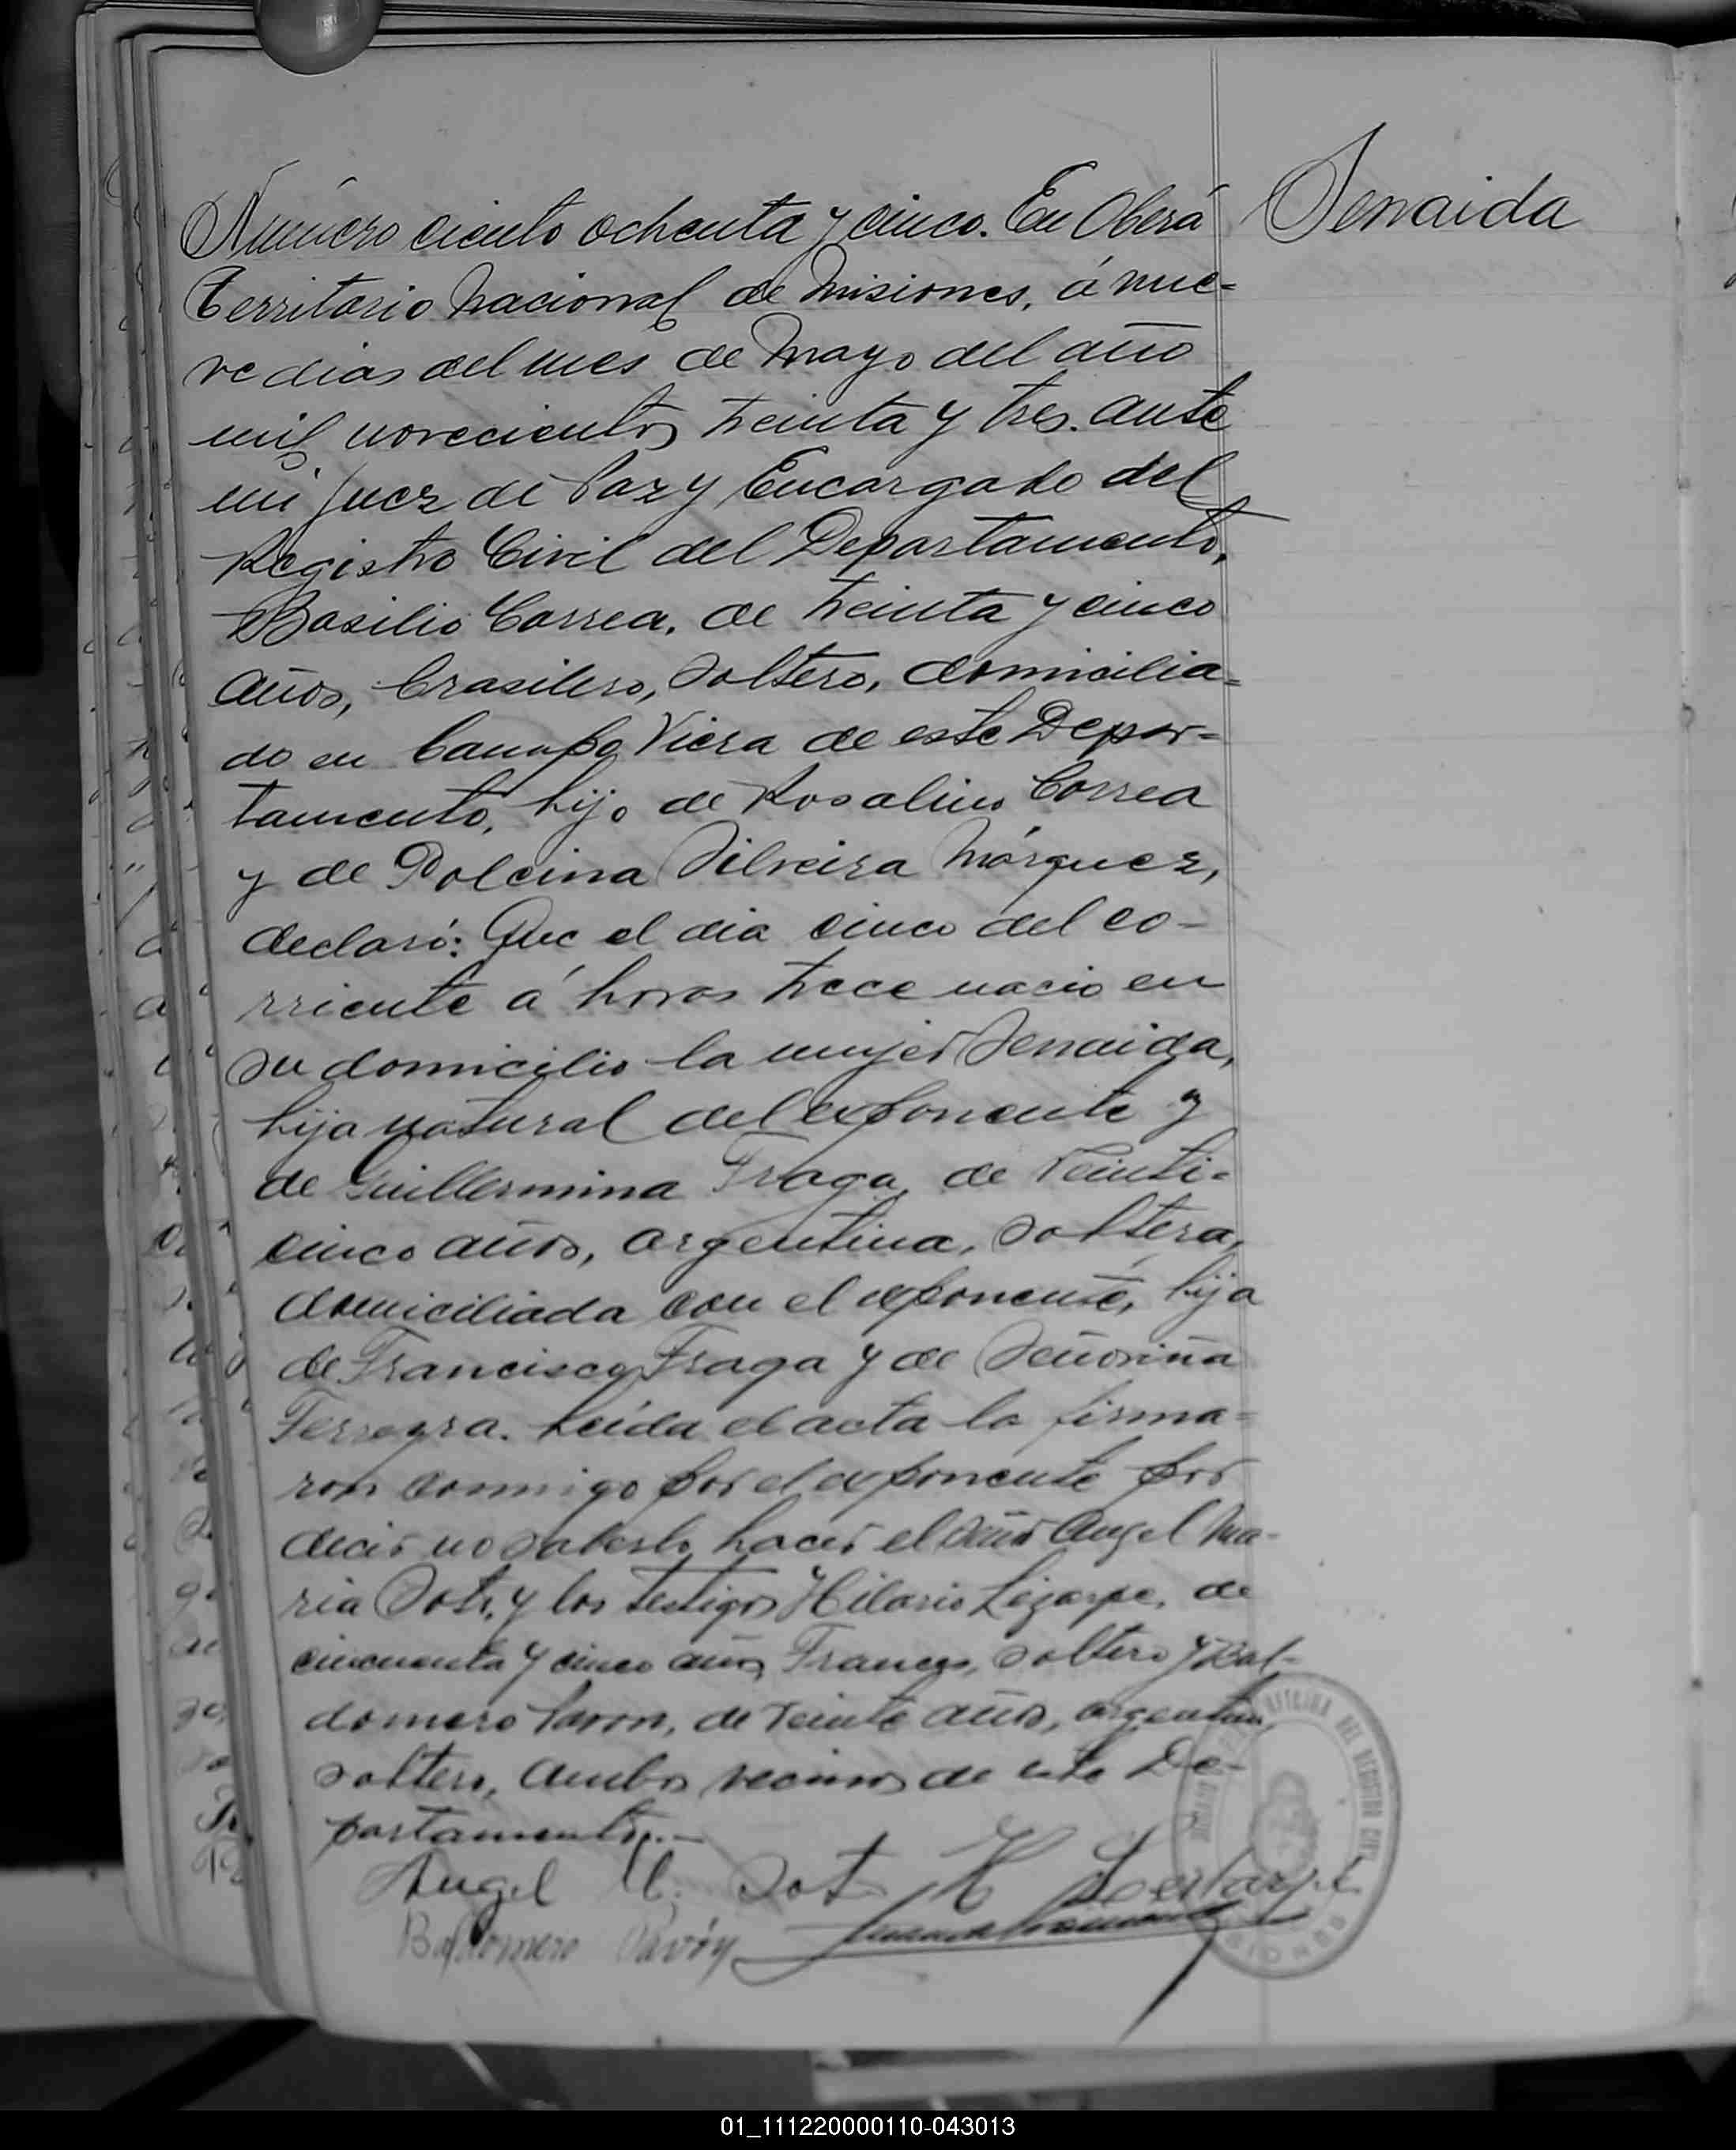 Número ciento ochenta y cinco. En Oberá
Senaida
Territorio Nacional de Misiones, á nue=
ve dias del mes de Mayo del año
mil novecientos treinta y tres. ante
mi Juez de Paz y Encargado del
Registro Civil del Departamento,
Basilio Correa, de treinta y cinco
años, brasilero, soltero, domicilia=
do en Campo Viera de este Depar=
tamento, hijo de Rosalino Correa
y de Polcina Silveira Márquez,
declaró: Que el dia cinco del co-
rriente á horas trece nacio en
su domicilio la mujer Senaida,
hija natural del exponente y
de Guillermina Fraga, de veinti=
cinco años, argentina, soltera,
domiciliada con el exponente, hija
de Francisco Fraga y de Señoriña
Ferreyra. Leida el acta la firma=
ron conmigo por el exponente por
decir no saberlo hacer el señor Angel Ma-
ria Soto, y los testigos Hilario Lizarpe, de
cincuenta y cinco años, Frances, soltero y Bal-
domero Pavon, de veinte años, argentino,
soltero, ambos vecinos de este De-
partamento.-
Angel M. Soto H
Baldomero Pavón
DEL REGISTRO CIVIL
01_111220000110-043013